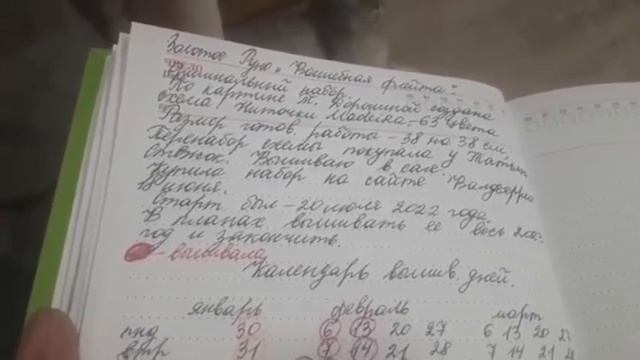 Золотое Руно "Волшебная флейта"
Оригинальный набор.
По картине М. Ворониной создана
схема. Ниточки Madeira - 63 цвета
Размер готов. работы - 38 на 38 см.
Перенабор схемы покупала у Татьян
Стожок. Вышиваю в саге.
Купила набор на сайте Валдберри
18 июня.
Старт был - 20 июля 2022 года.
В планах вышивать ее весь 202
год и закончить.
- вышивала
Календарь вышив. дней.
январь февраль март
пнд 30 6 13 20 27 6 13 20 2
втр 31 7 14 21 28 7 14 21